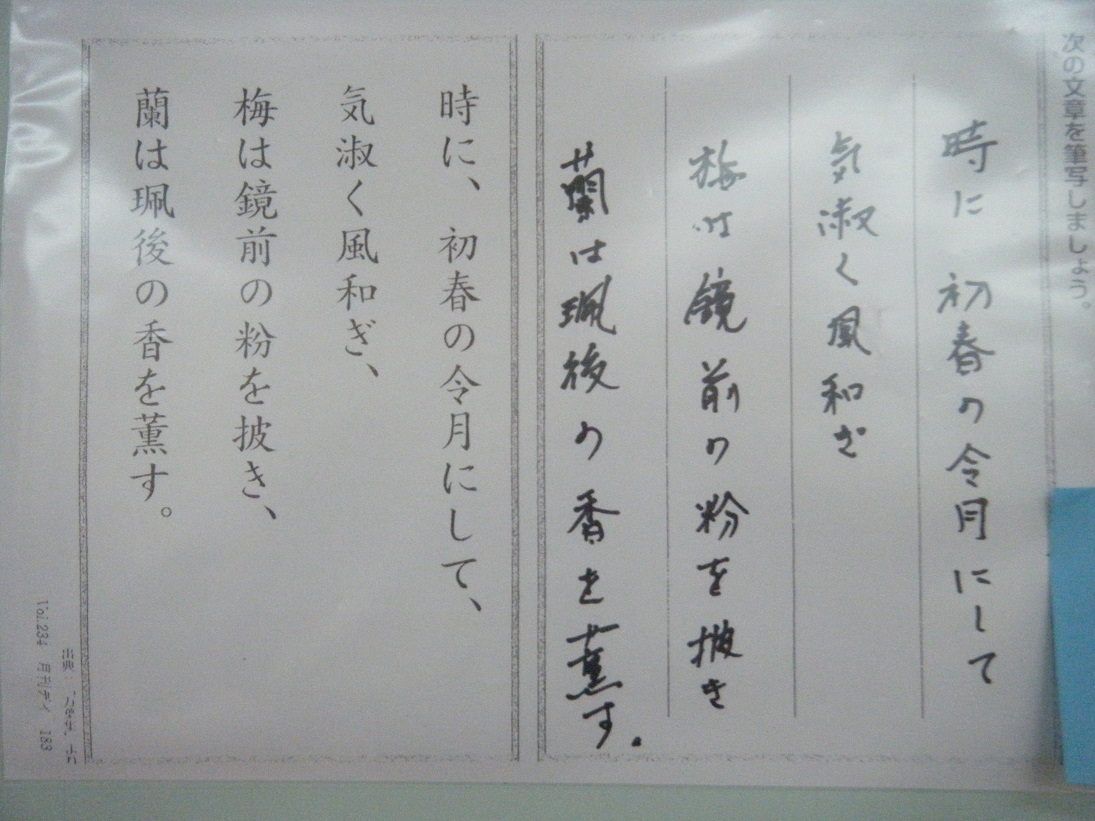 次の文章を筆写しましょう。
時に初春の令月にして
気淑く風和ぎ
梅は鏡前の粉を披き
蘭は珮後の香を薫す。
時に、初春の令月にして、
気淑く風和ぎ、
梅は鏡前の粉を披き、
蘭は珮後の香を薫す。
出典：
Vol.234 月刊デイ 183